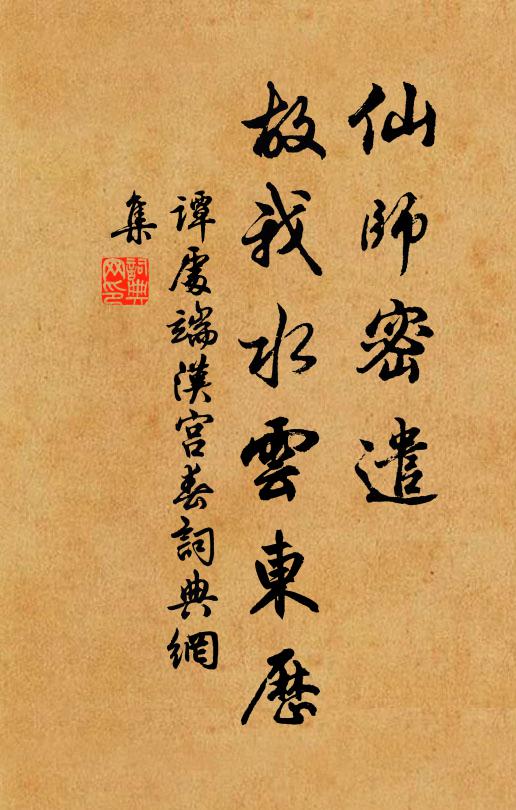 仙師密遣
故我水雲東歷
譚處端漢宮春詞典網
集
詞典
网印